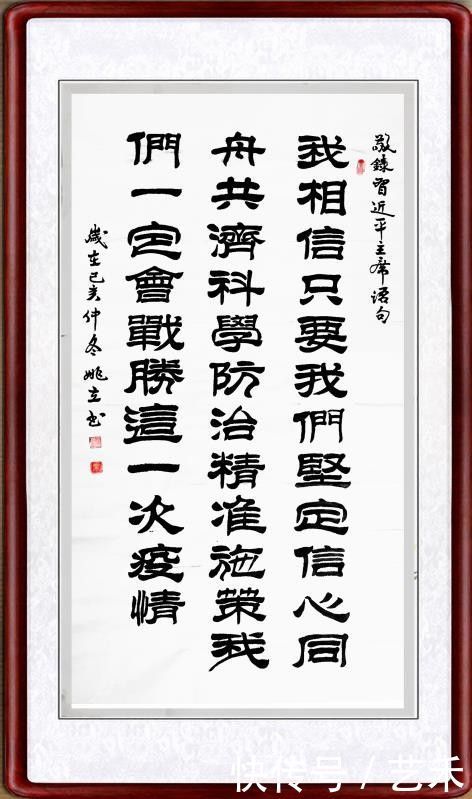 敬錄習近平主席语句
我相信只要我們堅定信心同
舟共濟科學防治精准施策我
們一定會戰勝這一次疫情
歲在己亥仲冬姚立书
快传号/艺禾